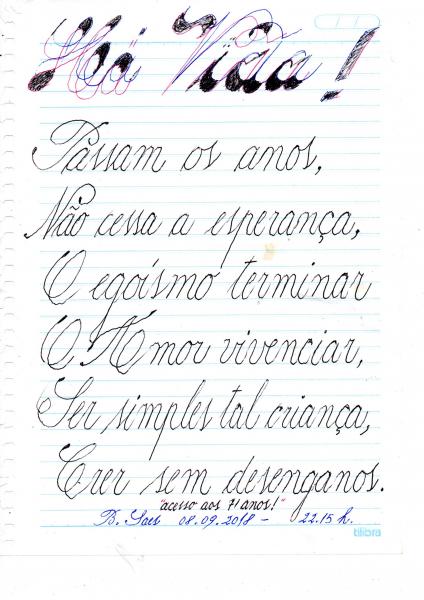 Há Vida!
Passam os anos,
Não cessa a esperança,
O egoísmo terminar
O Amor vivenciar,
Ser simples tal criança,
Crer sem desenganos.
"acesso aos 71 anos!"
B. Saes 08.09.2018 - 22.15 h.
tilibra